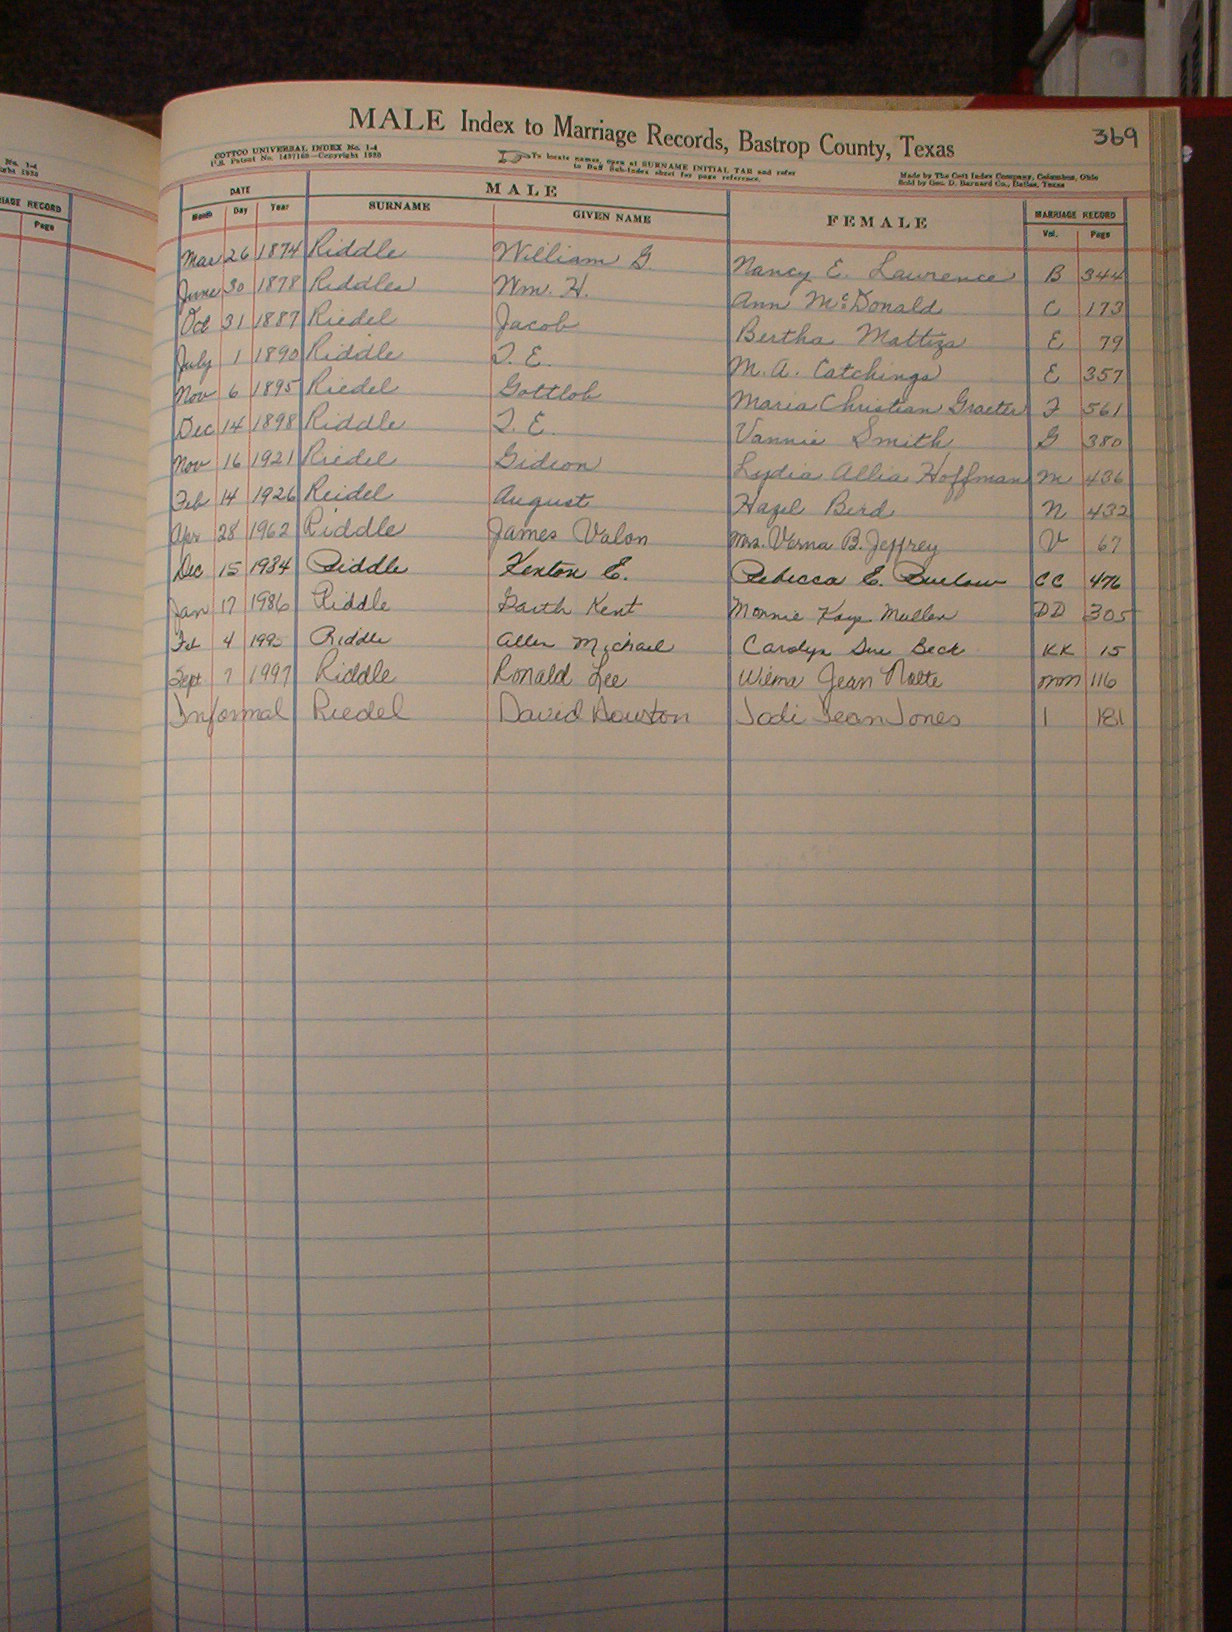 No. 1-4
IAGE RECORD
Page
MALE Index to Marriage Records, Bastrop County, Texas
369
COTTCO UNIVERSAL INDEX No. 1-4
U.S. Patent No. 1437169—Copyright 1930
To locate names, open at SURNAME INITIAL TAB and refer
to Buff Sub-Index sheet for page reference.
Made by The Cott Index Company, Columbus, Ohio
Sold by Geo. D. Barnard Co., Dallas, Texas
DATE MALE FEMALE MARRIAGE RECORD
Month Day Year SURNAME GIVEN NAME Vol. Page
Mar 26 1874 Riddle William G. Nancy E. Lawrence B 344
June 30 1878 Riddles Wm. H. Ann McDonald C 173
Oct 31 1887 Riedel Jacob Bertha Mattiza E 79
July 1 1890 Riddle T. E. M. A. Catchings E 357
Nov 6 1895 Riedel Gottlob Maria Christian Graeter F 561
Dec 14 1898 Riddle T. E. Vannie Smith G 380
Nov 16 1921 Riedel Gideon Lydia Allia Hoffman M 436
Feb 14 1926 Reidel August Hazel Berd N 432
Apr 28 1962 Riddle James Valon Mrs. Verna B. Jeffrey V 67
Dec 15 1984 Riddle Kenton E. Rebecca E. Buelow CC 476
Jan 17 1986 Riddle Garth Kent Monnie Kaye Mullen DD 305
Feb 4 1995 Riddle Allen Michael Carolyn Sue Beck KK 15
Sept 7 1997 Riddle Ronald Lee Wilma Jean Nolte MM 116
Informal Riedel David Howton Jodi Jean Jones 1 181